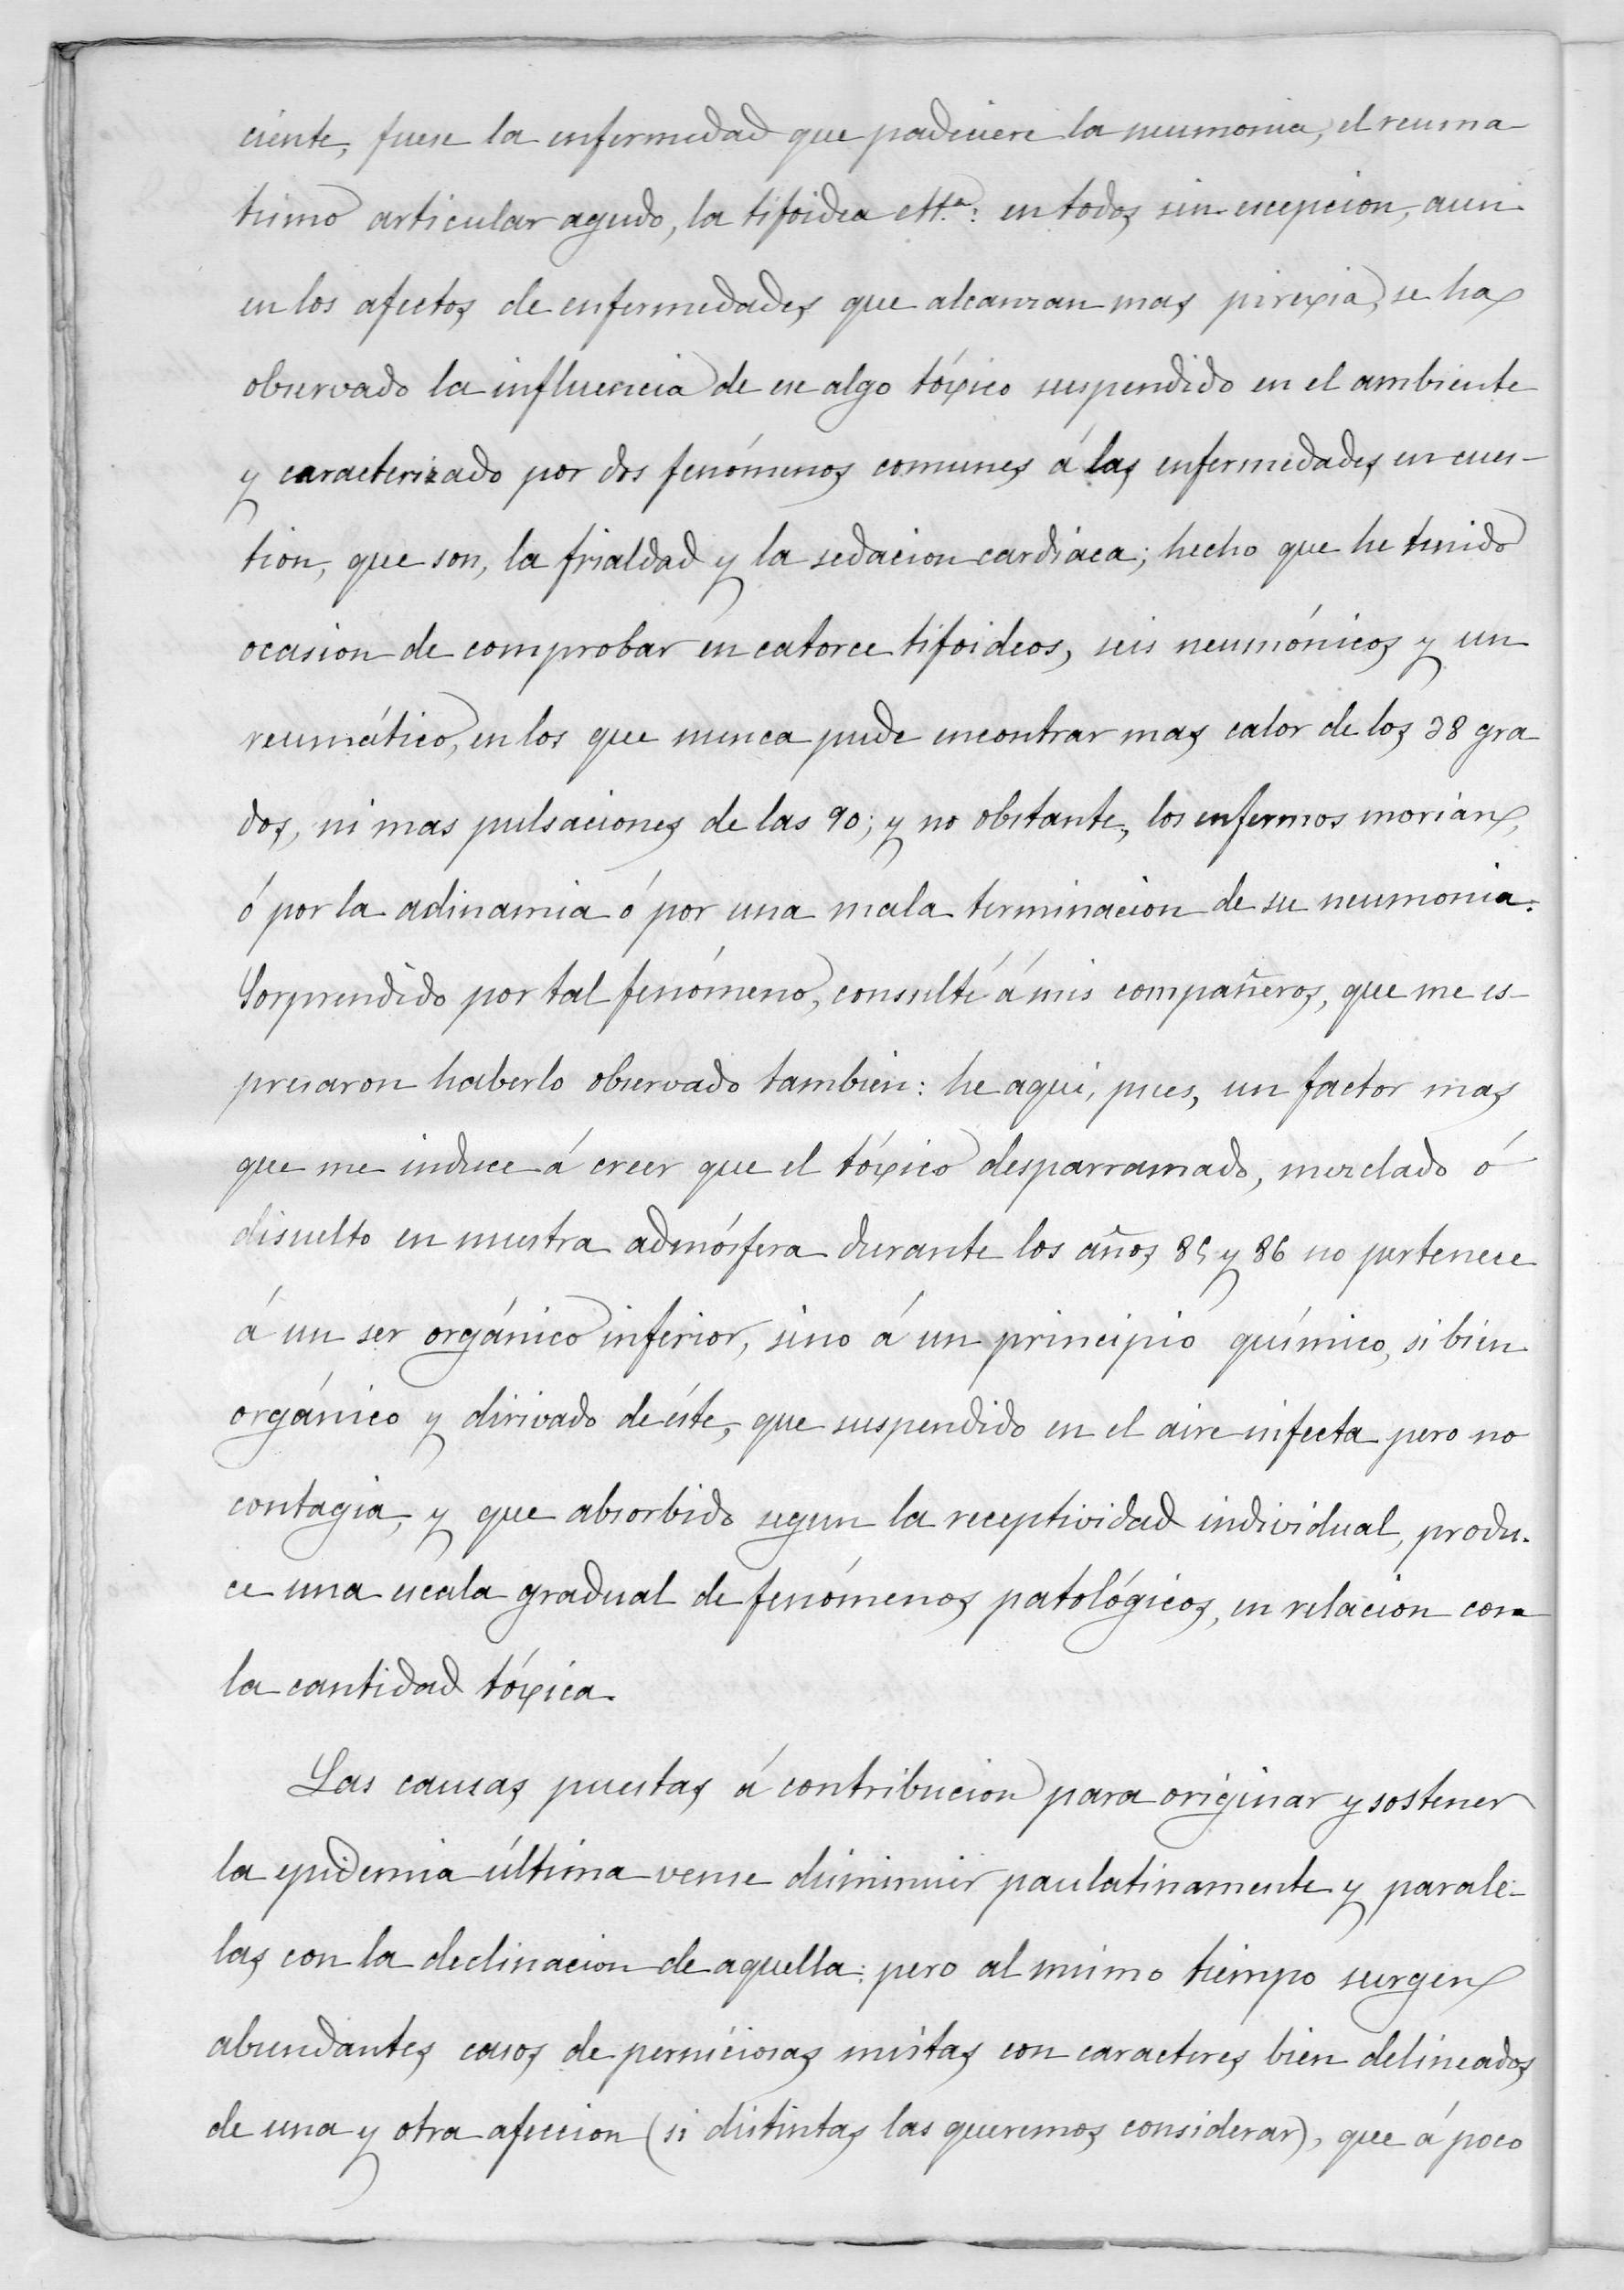 ciente, fuese la enfermedad que padeciere la neumonia, el reuma
tismo articular agudo, la tifoidea ett.ª: en todos sin escepcion, aun
en los afectos de enfermedades que alcanzan mas pirexia, se ha
observado la influencia de ese algo tóxico suspendido en el ambiente
y caracterizado por dos fenómenos comunes á las enfermedades en cues-
tion, que son, la frialdad y la sedacion cardiaca; hecho que he tenido
ocasion de comprobar en catorce tifoideos, seis neumónicos y un
reumático, en los que nunca pude encontrar mas calor de los 38 gra
dos, ni mas pulsaciones de las 90; y no obstante, los enfermos morian,
ó por la adinamia ó por una mala terminacion de su neumonia.
Sorprendido por tal fenómeno, consulté á mis compañeros, que me es-
presaron haberlo observado tambien: he aqui, pues, un factor mas
que me induce á creer que el tóxico desparramado, mezclado ó
disuelto en nuestra admósfera durante los años 85 y 86 no pertenece
á un ser orgánico inferior, sino á un principio químico, si bien
orgánico y dirivado de éste, que suspendido en el aire infecta pero no
contagia, y que absorbido segun la receptividad individual, produ-
ce una escala gradual de fenómenos patológicos, en relacion con
la cantidad tóxica.
Las causas puestas á contribucion para originar y sostener
la epidemia última vense disminuir paulatinamente y parale-
las con la declinacion de aquella: pero al mismo tiempo surgen
abundantes casos de perniciosas mistas con caracteres bien delineados
de una y otra afeccion (si distintas las queremos considerar), que á poco